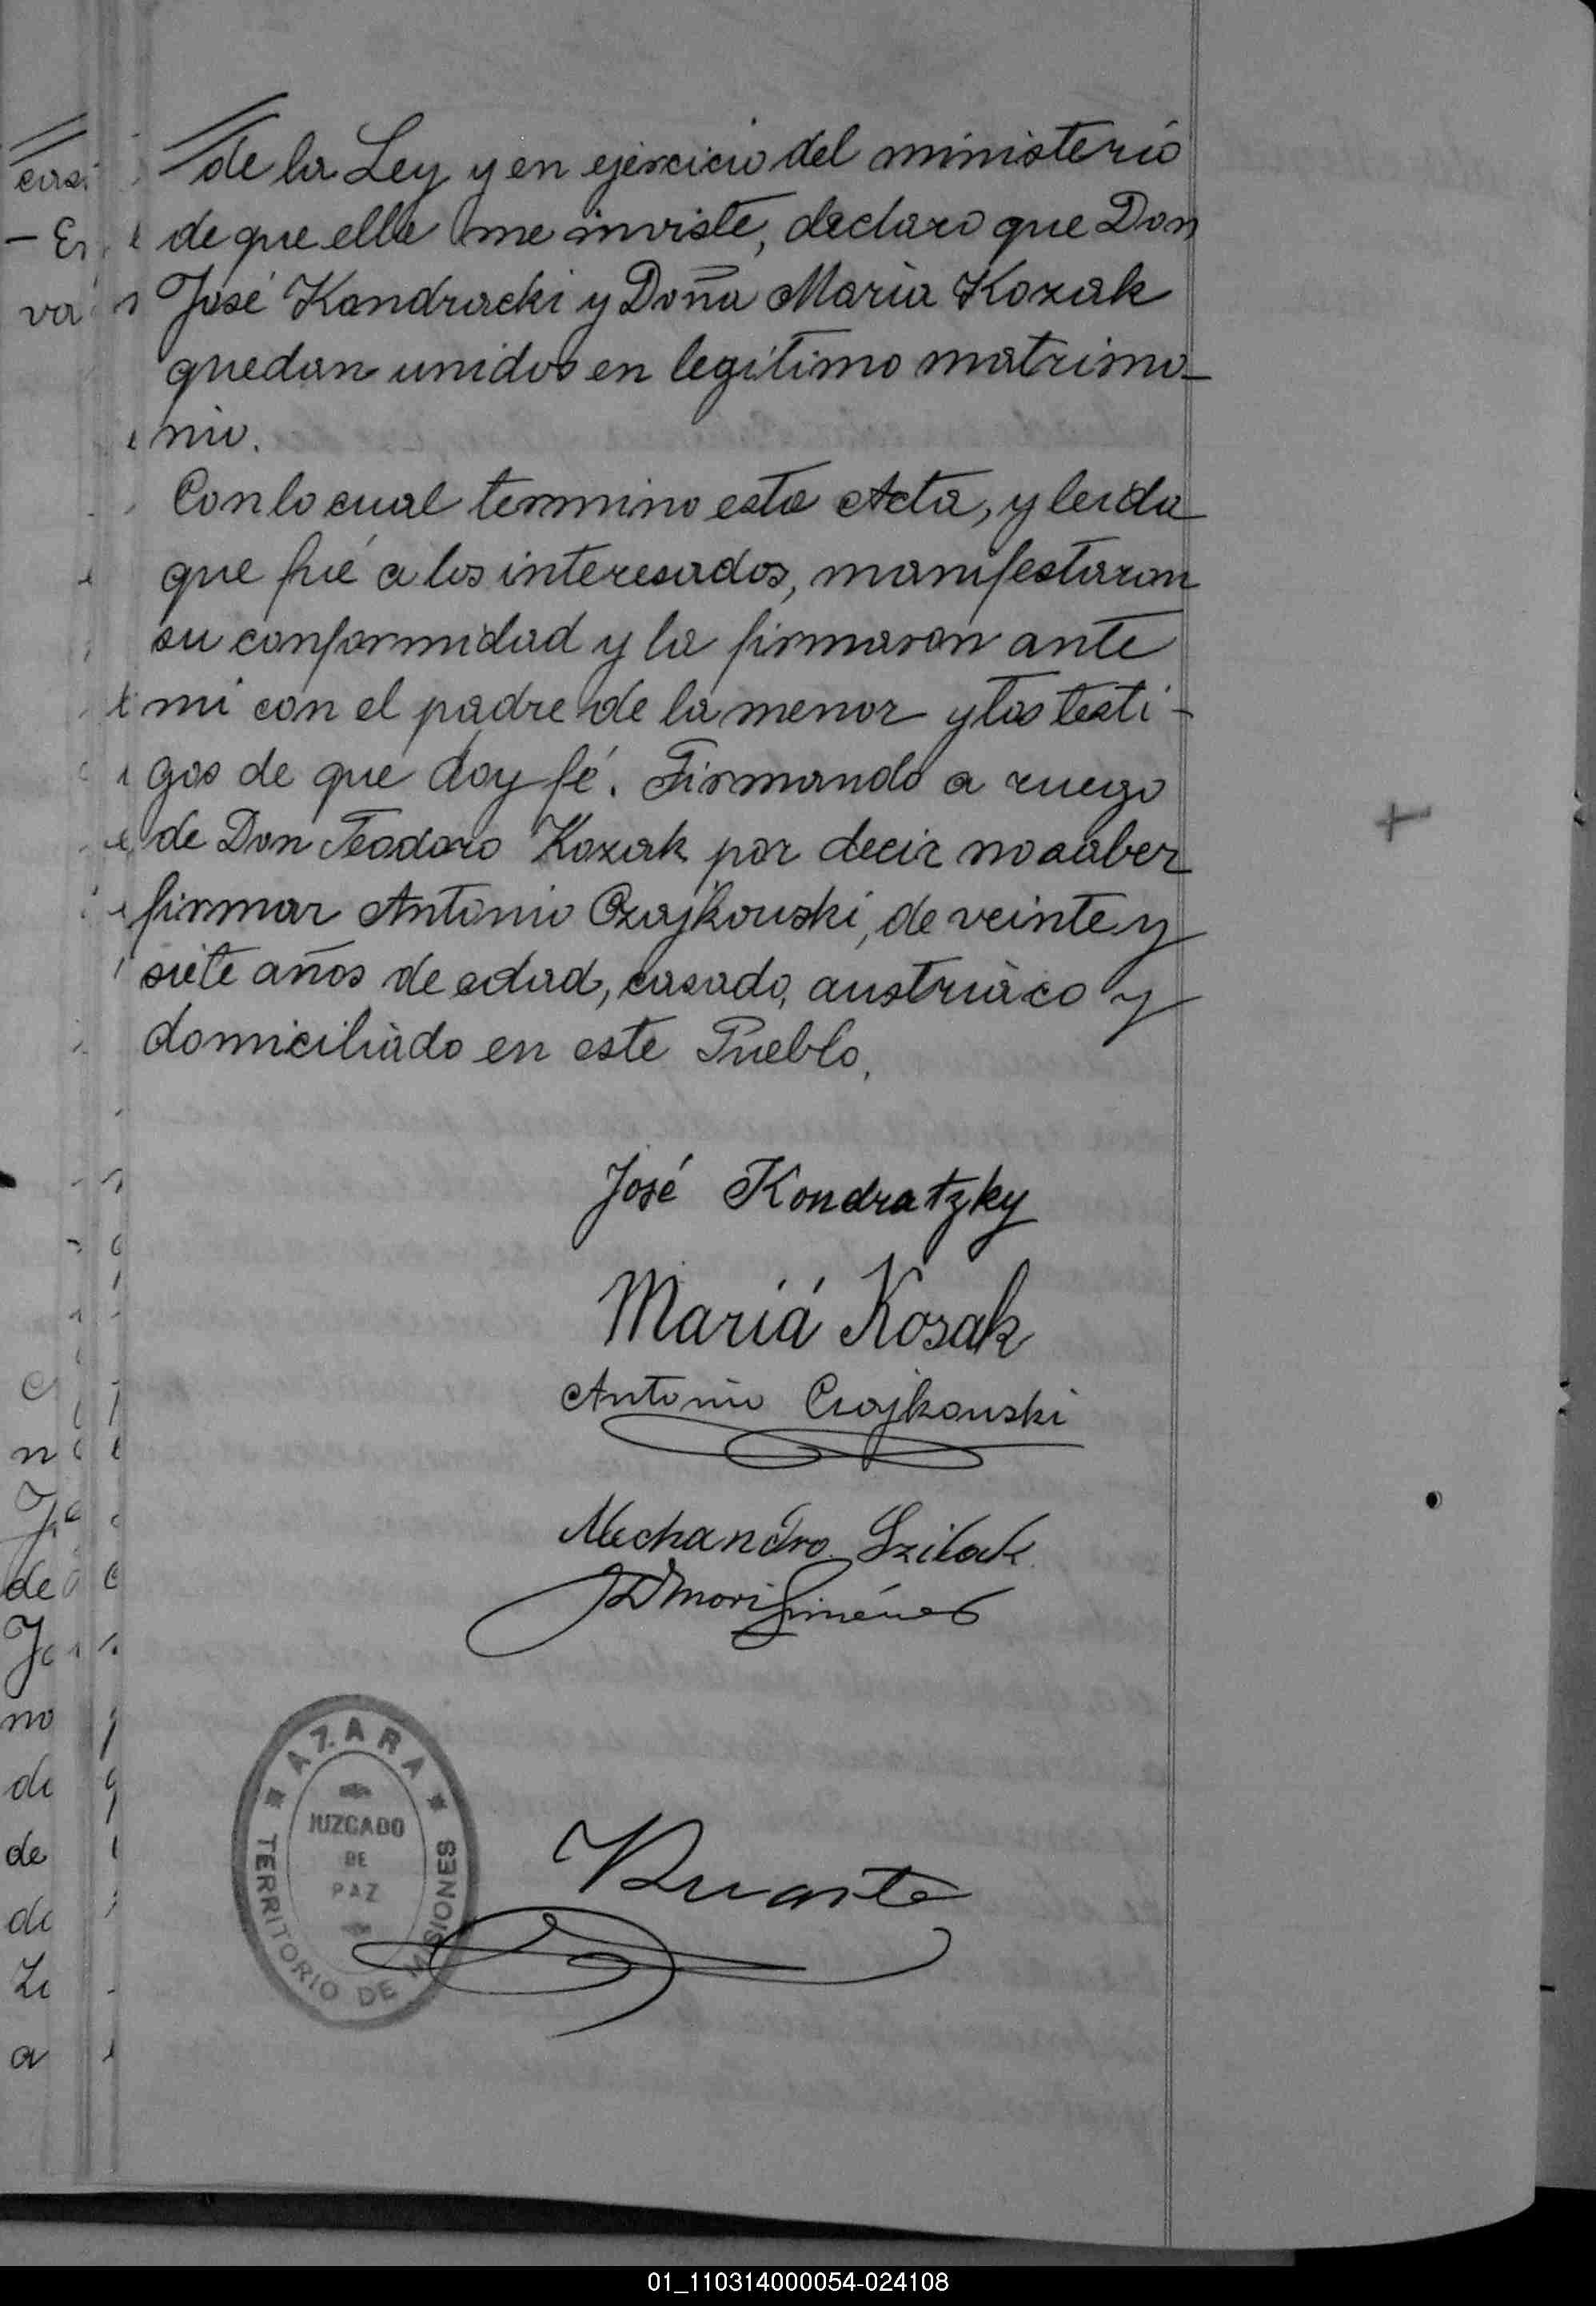 de la Ley y en ejercicio del ministerio
de que ella me inviste, declaro que Don
José Kondracki y Doña Maria Kozak
quedan unidos en legítimo matrimo-
nio.
Con lo cual termino esta Acta, y leida
que fué a los interesados, manifestaron
su conformidad y la firmaron ante
mi con el padre de la menor y los testi-
gos de que doy fé. Firmando a ruego
de Don Teodoro Kozak por decir no saber
firmar Antonio Czajkouski, de veinte y
siete años de edad, casado, austriaco y
domiciliado en este Pueblo.
José Kondratzky
Mariá Kosak
Antonio Czajkouski
Szilak
Giménez
AZARA
JUZGADO
DE
PAZ
TERRITORIO DE MISIONES
Duarte
01_110314000054-024108